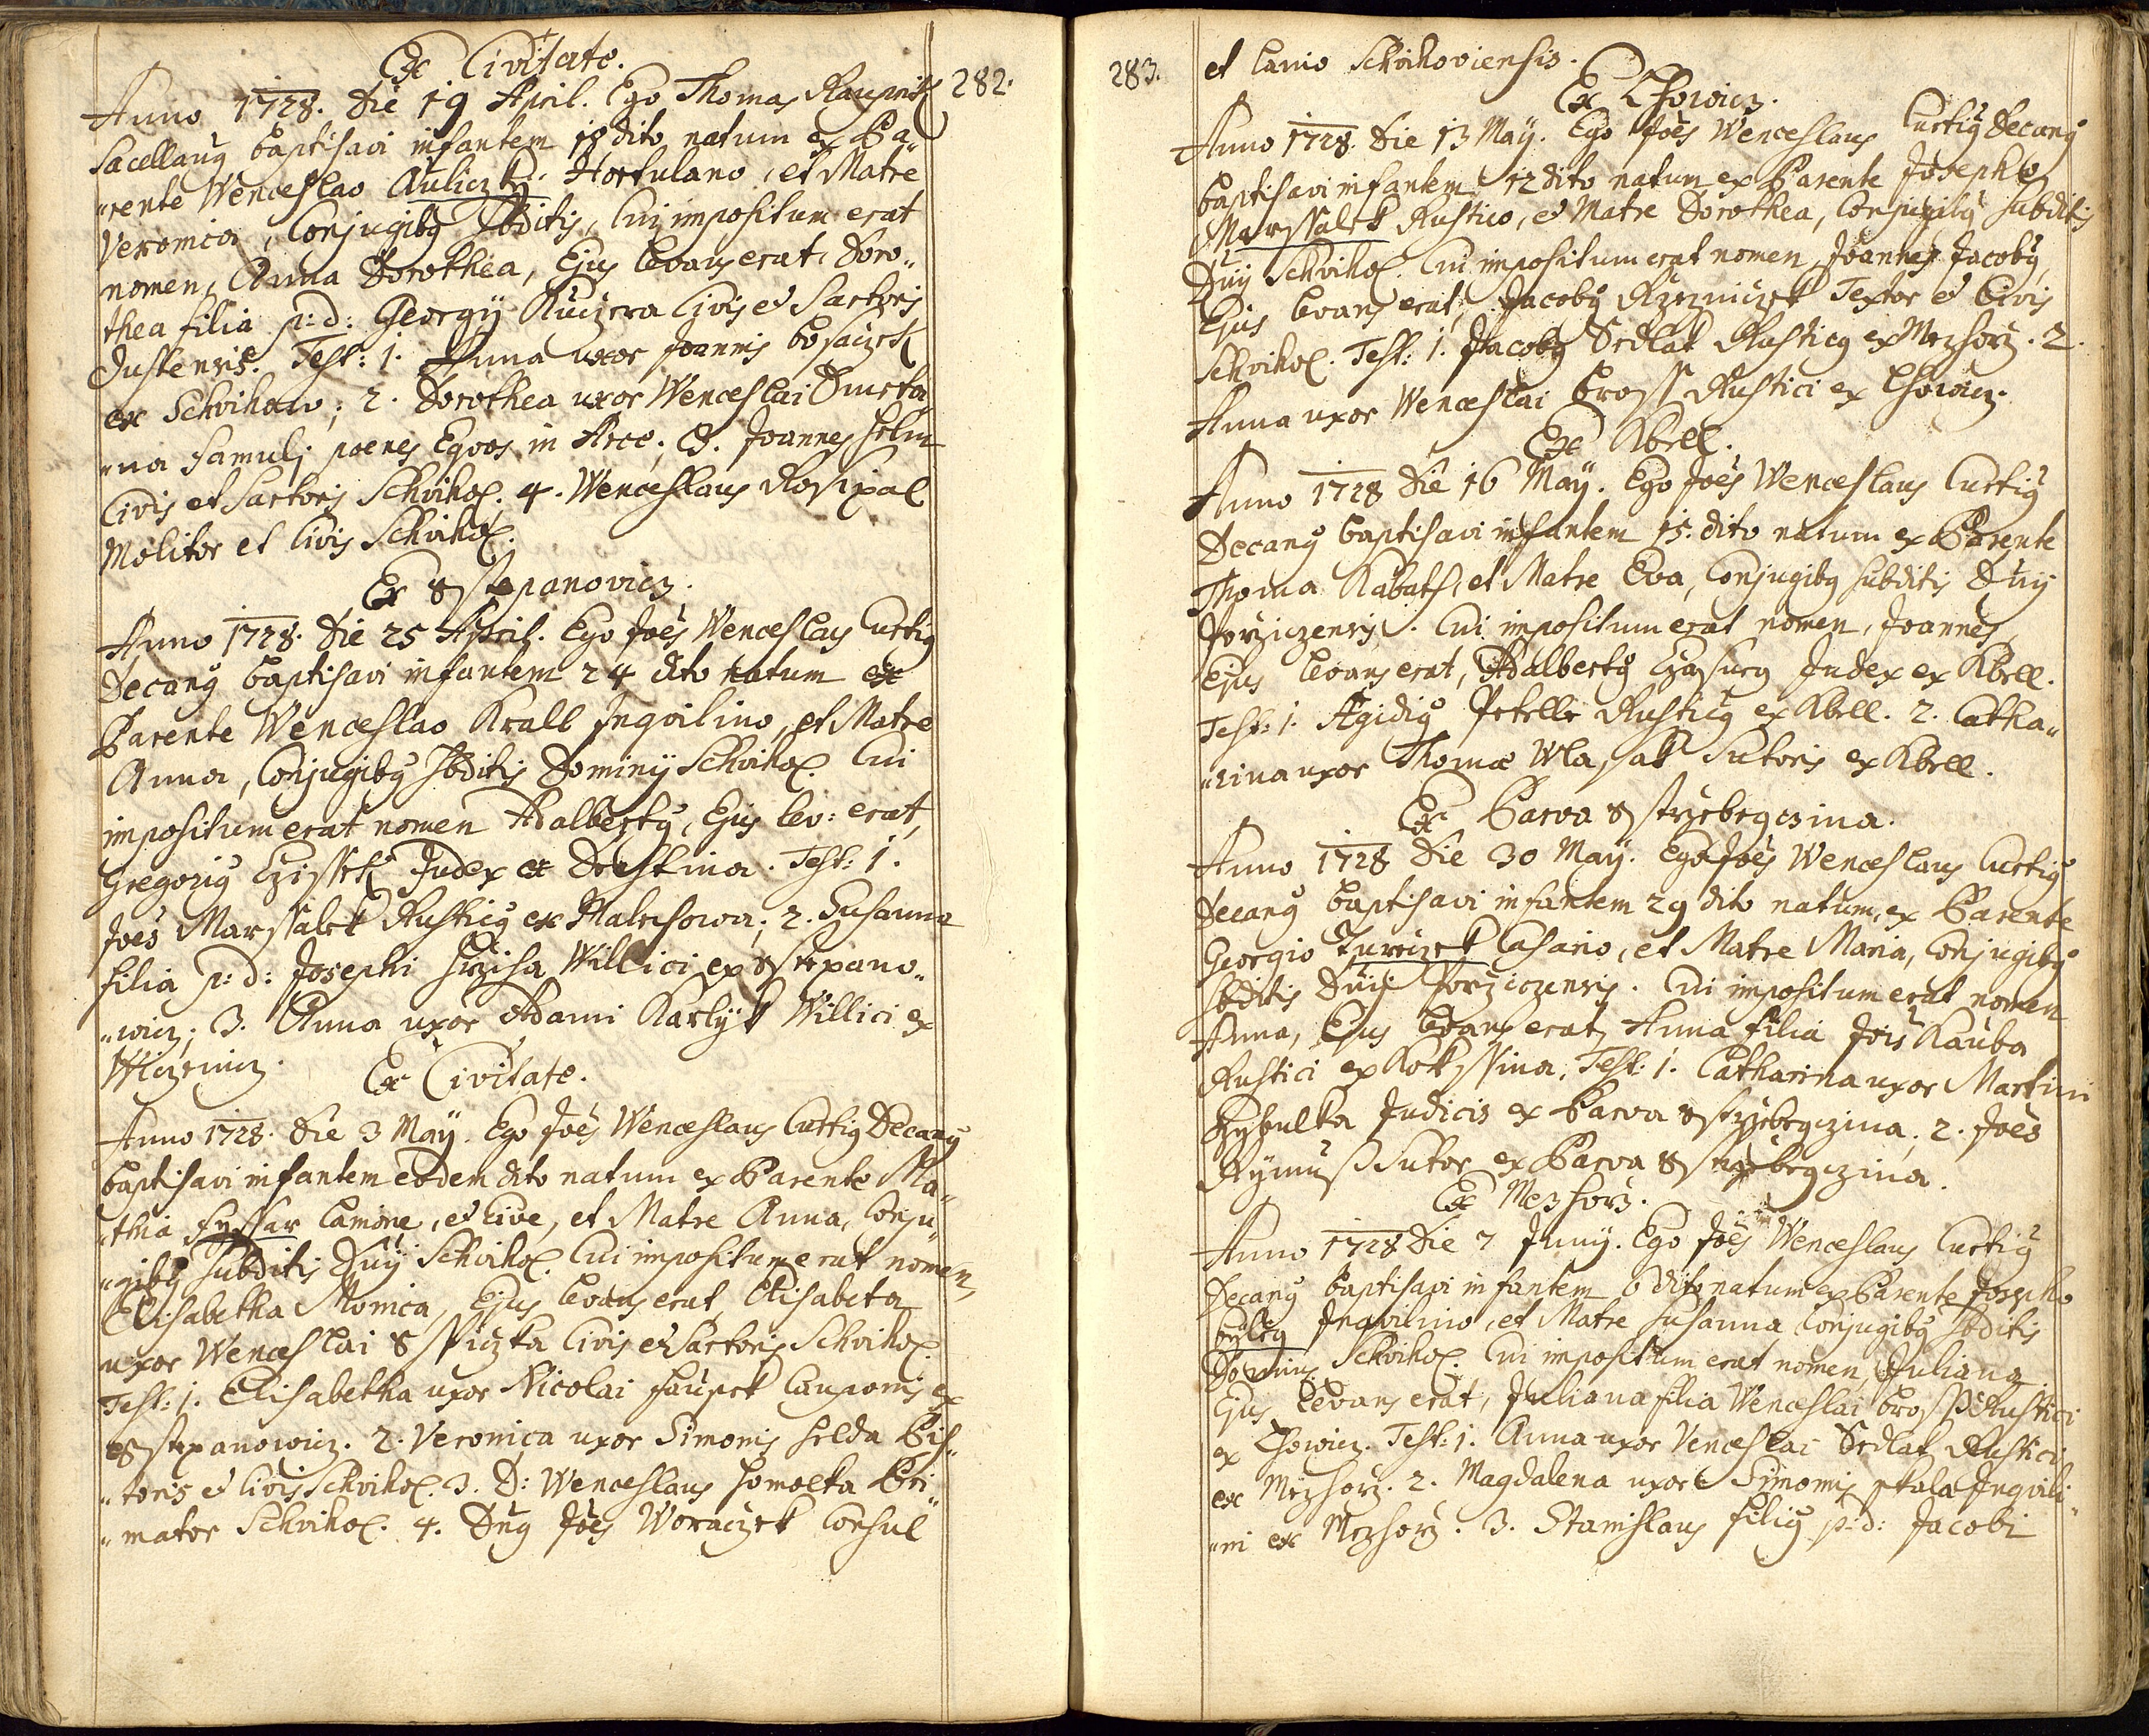 Ex Civitate.
282.
Anno 1728. Die 19 April. Ego Thomas
Sacellang baptisavi infantem 18 dito natum ex Pa„
„rente Wenceslao Auliczky Hortulano, et Matre
Veronica, Conjugibg Sbditis, Cui impositum erat
nomen, Anna Dorothea, Ejus levans erat, Doro„
thea filia p: d: Georgÿ Kuczera Civis et Sartoris
Test: 1. Anna uxor Joannis
ex Schvihow; 2. Dorothea uxor Wenceslai
„na famuli poenes Equos in Arce; 3. Joannes
Civis et Sartoris Schvihoẽ. 4. Wenceslaus Rosipal
Molitor et Civis Schvihoẽ.
Ex Sstepanovicz.
Anno 1728. Die 25 April. Ego Joes Wenceslaus Curtig
Decang baptisavi infantem 24 dito natum ex
Parente Wenceslao Krall Inqvilino, et Matre
Anna, Conjugibg Sbditis Dominÿ Schvihoẽ. Cui
impositum erat nomen Adalbertg, Ejus lev: erat,
Gregorig Czissek Judex ex Dehstina. Test: 1.
Joes Marssalek Rusticg ex Malechowa; 2. Susanna
filia p: d: Josephi Willici ex Sstepano„
„wicz; 3. Anna uxor Adami Karlÿk Willici ex
Wiczenicz.
Ex Civitate.
Anno 1728. Die 3 Maÿ. Ego Joes Wenceslaus Curtig Decang
baptisavi infantem eodem dito natum ex Parente Ma„
„thia Fyssar Lanione, et Cive, et Matre Anna, Conju„
„gibg Subditis Dnÿ Schvihoẽ. Cui impositum erat nomen
Elisabetha Monica, Ejus levans erat, Elisabeta
uxor Wenceslai Sspiczka Civis et Sartoris Schvihoẽ.
Test: 1. Elisabetha uxor Nicolai Cauponis ex
Sstepanowicz. 2. Veronica uxor Simonis Helda Pis„
„toris et Civis Schvihoẽ. 3. D: Wenceslaus Homolka Pri„
„mator Schvihoẽ. 4. Dng Joes Woraczek Consul
283.
et Lanio Schvihoviensis.
Ex Lhowicz.
Anno 1728. Die 13 Maÿ. Ego Joes Wenceslaus Curtig Decang
baptisavi infantem 12 dito natum ex Parente Josepho
Marssalek Rustico, et Matre Dorothea, Conjugibg Subditis
Dnÿ Schvihoẽ. Cui impositum erat nomen Joannes Jacobg,
Ejus levans erat, Jacobg Rzezniczek Textor et Civis
Schvihoẽ. Test: 1. Jacobg Sedlak Rusticg ex Mezhorz. 2.
Anna uxor Wenceslai Bross Rustici ex Lhowicz.
Ex Kbell.
Anno 1728 Die 16 Maÿ. Ego Joes Wenceslaus Curtig
Decang baptisavi infantem 15. dito natum ex Parente
Thoma Kabath, et Matre Eva, Conjugibg subditis Dnÿ
Porziczensis. Cui impositum erat nomen, Joannes,
Ejus levans erat, Adalbertg Judex ex Kbell.
Test: 1. Ægidig Rusticg ex Kbell. 2. Catha„
„rina uxor Thomæ Wlassak Sutoris ex Kbell.
Ex Parva Sstrzebrczina.
Anno 1728 Die 30 Maÿ. Ego Joes Wenceslaus Curtig
Decang baptisavi infantem 29 dito natum, ex Parente
Georgio Tureczek Casario, et Matre Maria, Conjugibg
Sbditis Dnÿ Porziczensis. Cui impositum erat nomen
Anna, Ejus levans erat, Anna filia Jois Kauba
Rustici ex Kokssina, Test: 1. Catharina uxor Martini
Czybulka Judicis ex Parva Sstrzebrczina, 2. Joes
Sutor ex Parva Sstrzebrczina.
Ex Mezhorz.
Anno 1728 Die 7 Junÿ. Ego Joes Wenceslaus Curtig
Decang baptisavi infantem 6 dito natum ex Parente Josepho
Inqvilino, et Matre Susanna Conjugibg Sbditis
Dominÿ Schvihoẽ. Cui impositum erat nomen, Juliana
Ejus levans erat, Juliana filia Wenceslai Bross Rustici
ex Lhowicz. Test: 1. Anna uxor Venceslai Sedlak Rustici
ex Mezhorz. 2. Magdalena uxor Simonis Skala Inqvili„
„ni ex Mezhorz. 3. Stanislaus filig p: d: Jacobi